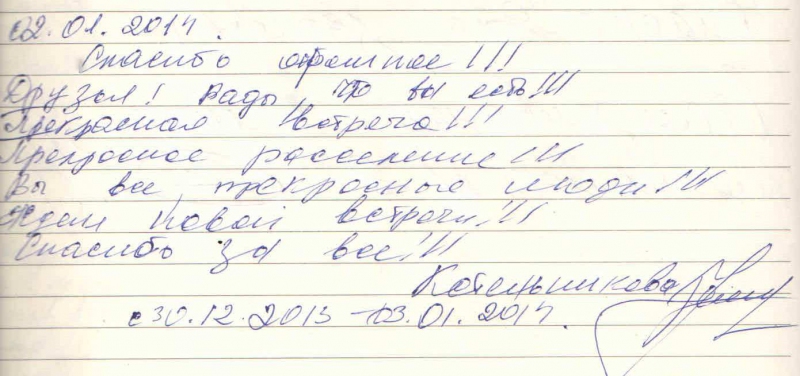 02.01.2014.
Спасибо огромное!!!
Друзья! Рады, что вы есть!!!
Прекрасная встреча!!!
Прекрасное расселение!!!
Вы все прекрасные люди!!!
Ждем новой встречи!!!
Спасибо за все!!!
Котельникова
с 30.12.2013 - 03.01.2014.